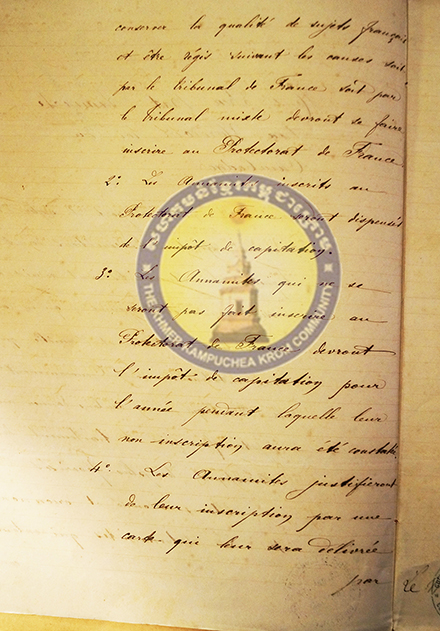 conserver la qualité de sujets français
et être régis suivant les causes soit
par le tribunal de France soit par
le tribunal mixte devront se faire
inscrire au Protectorat de France
2° Les Annamites inscrits au
Protectorat de France seront dispensés
de l'impôt de capitation.
3° Les Annamites qui ne se
seront pas fait inscrire au
Protectorat de France devront
l'impôt de capitation pour
l'année pendant laquelle leur
non inscription aura été constatée
4° Les Annamites justifieront
de leur inscription par une
carte qui leur sera délivrée
par
THE KHMER KAMPUCHEA KROM COMMUNITY